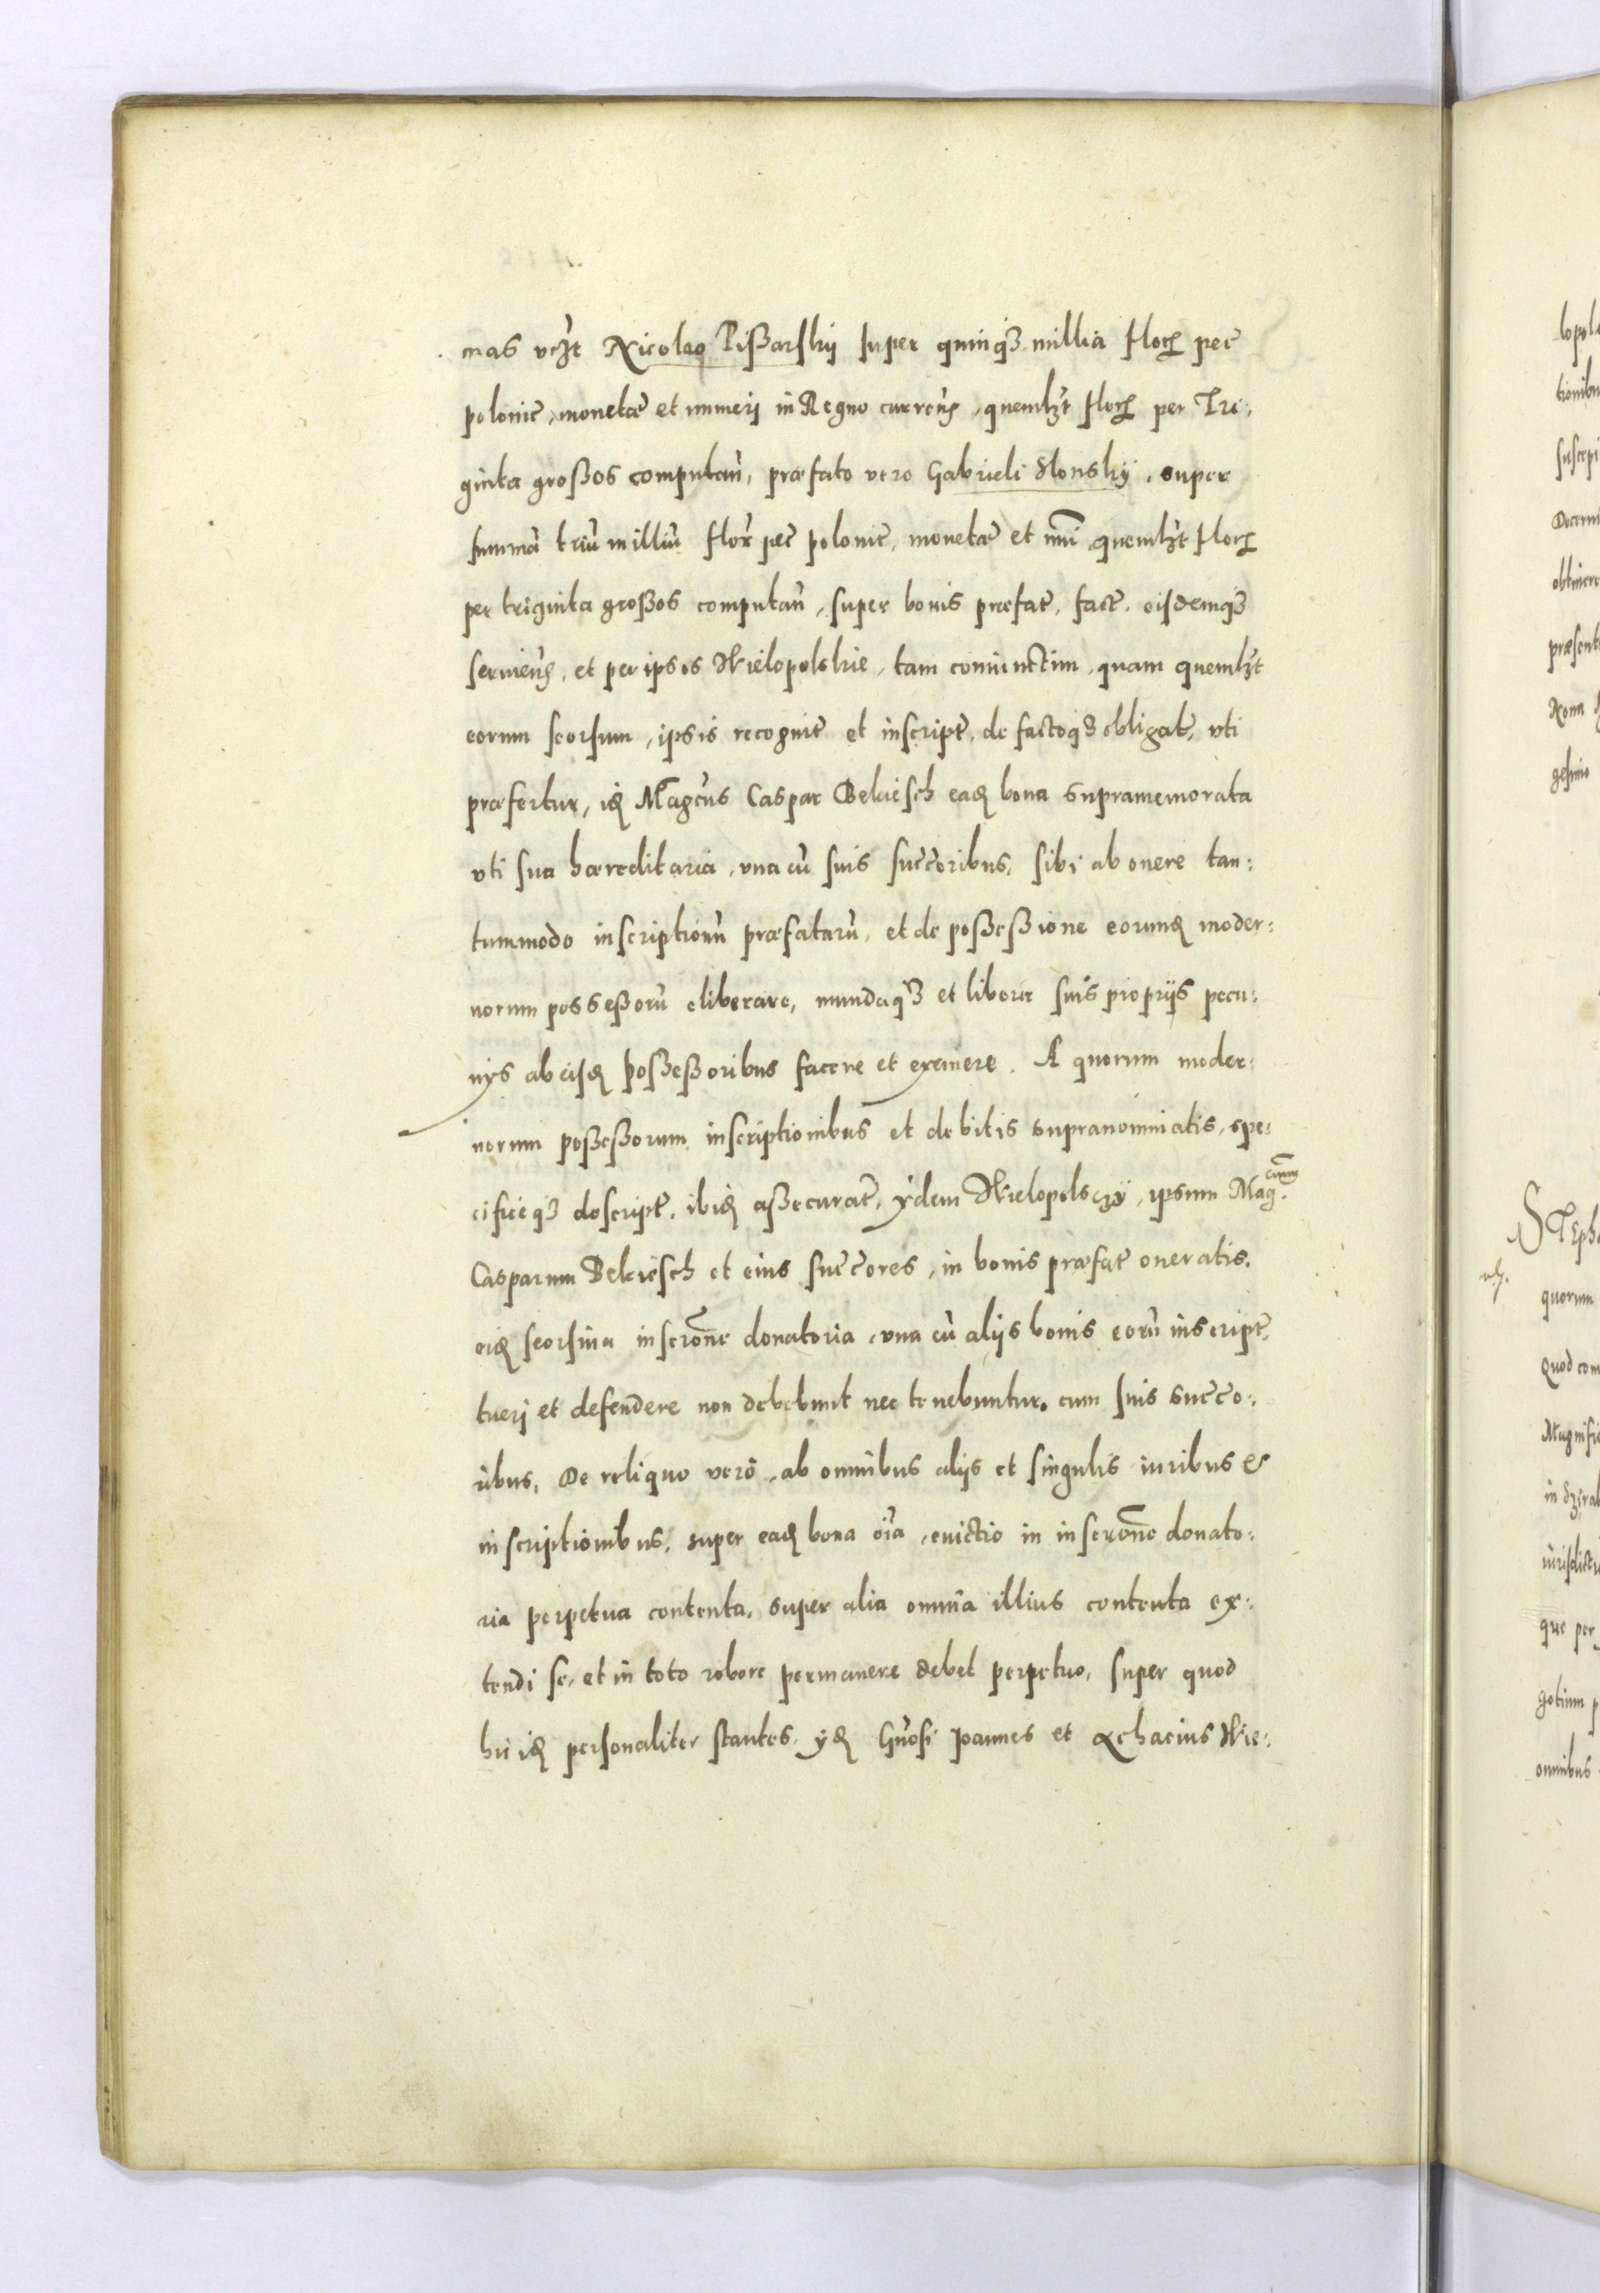 mas vczt Nicolao Pißarskij super quinq3 millia flor pec
polonic, monetæ et numeri in Regno curren, quemlzt flor per Tri:
ginta großos computan, præfato vero Gabrieli Slonskij, super
summā triū milliū flor pec polonic, monetæ et nri quemlzt flor
per triginta großos computan, super bonis præfat, fact, eisdemq3
servien, et per ipsos Wielopolskie, tam coniunctim, quam quemlzt
eorum seorsum, ipsis recognit et inscript, de factoq3 obligat, vti
præfertur, id Magcus Caspar Bekiesch ead bona supramemorata
vti sua hæreditaria, vna cū suis succoribus, sibi ab onere tan:
tummodo inscriptionū præfatarū, et de poßeßione eorund moder:
norum posseßorū eliberare, mundaq3 et libera suis proprijs pecu:
nijs ab eisd poßeßoribus facere et eximere. A quorum moder:
norum poßeßorum inscriptionibus et debitis supranominatis, spe:
cificeq3 descript, ibid aßecurat, ydem Wielopolsczÿ, ipsum Mag.cum
Casparum Bekiesch et eius succores, in bonis præfat oneratis,
eid seorsiua inscrone donatoria, vna cū alijs bonis eorū inscript,
tueri et defendere non debebunt nec tenebuntur, cum suis succo:
ribus, De reliquo vero, ab omnibus alijs et singulis iuribus &
inscriptionibus, super ead bona oia, euictio in inscrone donato:
ria perpetua contenta, super alia omnia illius contenta ex:
tendi se, et in toto robore permanere debet perpetuo, super quod
hic id personaliter stantes, yd Gnosi Joannes et Achacius Wie:
lopols
tionibus
suscepi
Decerni
obtinere
præsent
gesimo
STeph
quorum
Quod com
Magnific
iurisdicti
que per
gotium p
omnibus